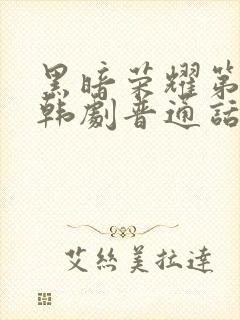 黑暗荣耀第
韩剧普通话
艾丝美拉達